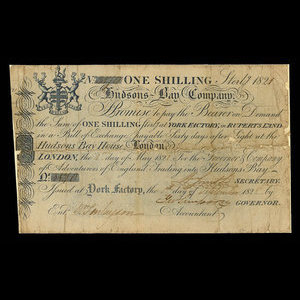 ONE SHILLING Sterl'g 1821
Hudsons Bay Company.
Promise to pay the Bearer on Demand
the Sum of ONE SHILLING Sterl'g at YORK FACTORY, in RUPERTS LAND
in a Bill of Exchange payable Sixty days after Sight at the
Hudsons Bay House London.
LONDON, the day of May 182 For the Governor & Company
of Adventurers of England Trading into Hudsons Bay
No. SECRETARY.
Issued at York Factory, the day of 182 by
Ent. Accountant GOVERNOR.